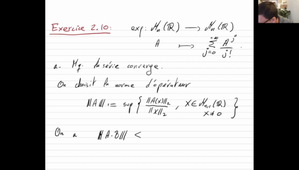 Exercise 2.10: exp: Mn(R) → Mn(R)
A ⟼ Σ_{j=0}^{+∞} A^j / j!
a. Mq la série converge.
On choisit la norme d'opérateur
|||A||| := sup { ||A(x)||₂ / ||x||₂ , X ∈ Mn,1(R) X≠0 }
On a |||A·B||| <